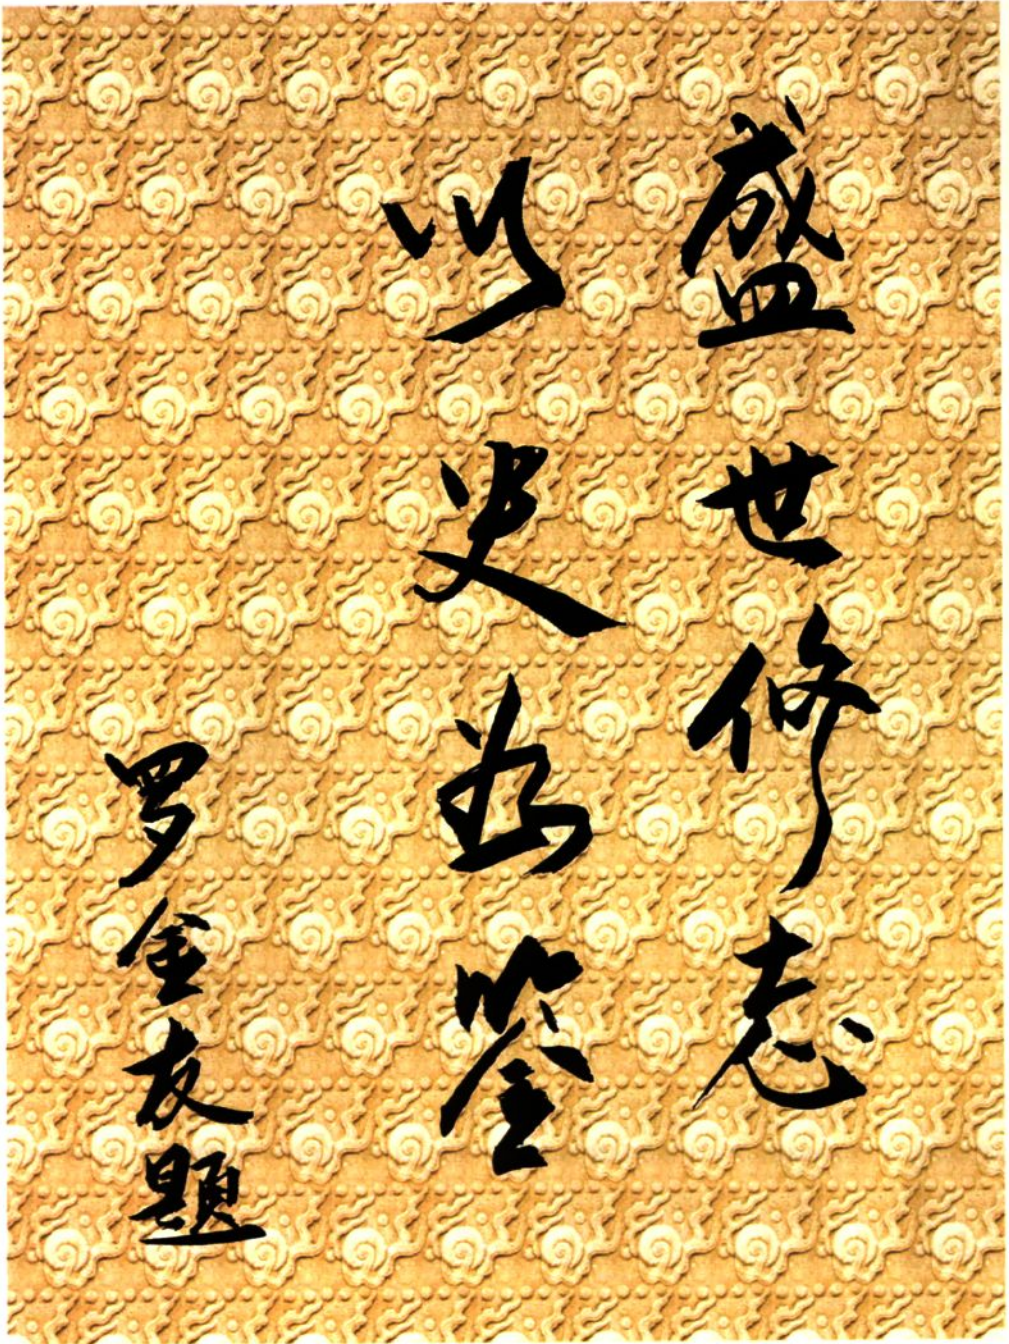 盛世修志
以史为鉴
罗金友题